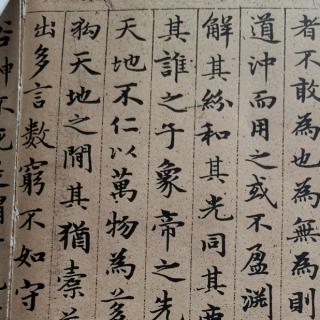 者不敢為也為無為則
道沖而用之或不盈淵
解其紛和其光同其
其誰之子象帝之先
天地不仁以萬物為芻
狗天地之間其猶橐
出多言數窮不如守
谷神不死是謂